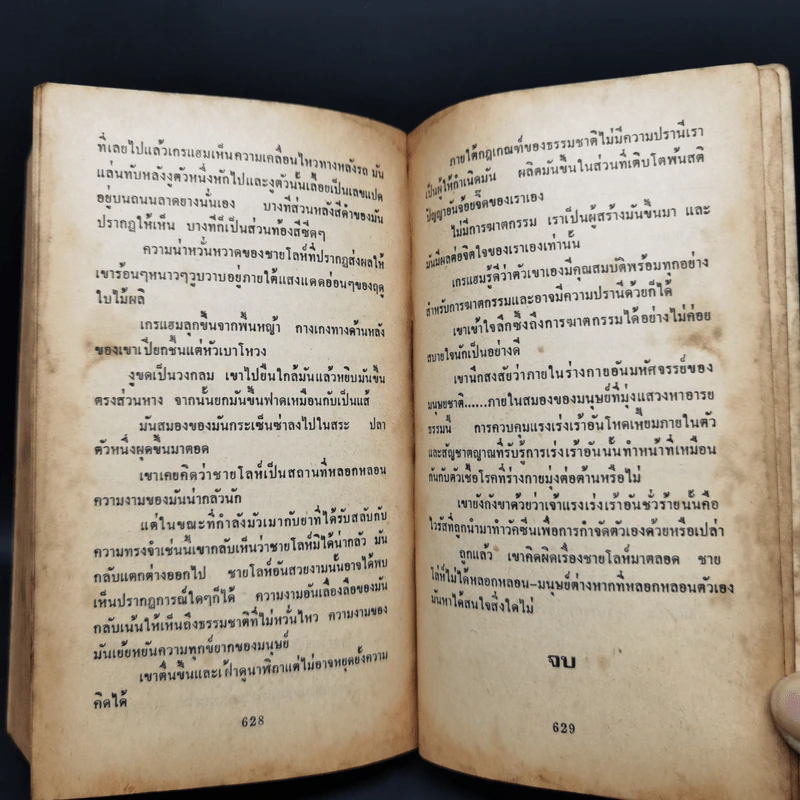 ที่เลยไปแล้วเกรแฮมเห็นความเคลื่อนไหวทางหลังรถ มัน
แล่นทับหลังงูตัวหนึ่งหักไปและงูตัวนั้นเลื้อยเป็นเลขแปด
อยู่บนถนนลาดยางนั่นเอง บางทีส่วนหลังสีดำของมัน
ปรากฏให้เห็น บางทีก็เป็นส่วนท้องสีซีดๆ
ความน่าหวั่นหวาดของชายโลห์ที่ปรากฏส่งผลให้
เขาร้อนๆหนาวๆวูบวาบอยู่ภายใต้แสงแดดอ่อนๆของฤดู
ใบไม้ผลิ
เกรแฮมลุกขึ้นจากพื้นหญ้า กางเกงทางด้านหลัง
ของเขาเปียกชื้นแต่หัวเบาโหวง
งูขดเป็นวงกลม เขาไปยืนใกล้มันแล้วหยิบมันขึ้น
ตรงส่วนหาง จากนั้นยกมันขึ้นฟาดเหมือนกับเป็นแส้
มันสมองของมันกระเซ็นซ่าลงไปในสระ ปลา
ตัวหนึ่งผุดขึ้นมาตอด
เขาเคยคิดว่าชายโลห์เป็นสถานที่หลอกหลอน
ความงามของมันน่ากลัวนัก
แต่ในขณะที่กำลังมัวเมากับยาที่ได้รับสลับกับ
ความทรงจำเช่นนี้เขากลับเห็นว่าชายโลห์มิได้น่ากลัว มัน
กลับแตกต่างออกไป ชายโลห์อันสวยงามนั้นอาจได้พบ
เห็นปรากฏการณ์ใดๆก็ได้ ความงามอันเลื่องลือของมัน
กลับเน้นให้เห็นถึงธรรมชาติที่ไม่หวั่นไหว ความงามของ
มันเย้ยหยันความทุกข์ยากของมนุษย์
เขาตื่นขึ้นและเฝ้าดูนาฬิกาแต่ไม่อาจหยุดยั้งความ
คิดได้
628
ภายใต้กฎเกณฑ์ของธรรมชาติไม่มีความปรานีเรา
เป็นผู้ให้กำเนิดมัน ผลิตมันขึ้นในส่วนที่เติบโตพ้นสติ
ปัญญาอันจ้อยจี๊ดของเราเอง
ไม่มีการฆาตกรรม เราเป็นผู้สร้างมันขึ้นมา และ
มันมีผลต่อจิตใจของเราเองเท่านั้น
เกรแฮมรู้ดีว่าตัวเขาเองมีคุณสมบัติพร้อมทุกอย่าง
สำหรับการฆาตกรรมและอาจมีความปรานีด้วยก็ได้
เขาเข้าใจลึกซึ้งถึงการฆาตกรรมได้อย่างไม่ค่อย
สบายใจนักเป็นอย่างดี
เขานึกสงสัยว่าภายในร่างกายอันมหัศจรรย์ของ
มนุษยชาติ......ภายในสมองของมนุษย์ที่มุ่งแสวงหาอารย
ธรรมนี้ การควบคุมแรงเร่งเร้าอันโหดเหี้ยมภายในตัว
และสัญชาตญาณที่รับรู้การเร่งเร้าอันนั้นทำหน้าที่เหมือน
กันกับตัวเชื้อโรคที่ร่างกายมุ่งต่อต้านหรือไม่
เขายังกังขาด้วยว่าเจ้าแรงเร่งเร้าอันชั่วร้ายนั้นคือ
ไวรัสที่ถูกนำมาทำวัคซีนเพื่อการกำจัดตัวเองด้วยหรือเปล่า
ถูกแล้ว เขาคิดผิดเรื่องชายโลห์มาตลอด ชาย
โลห์ไม่ได้หลอกหลอน–มนุษย์ต่างหากที่หลอกหลอนตัวเอง
มันหาได้สนใจสิ่งใดไม่
จบ
629